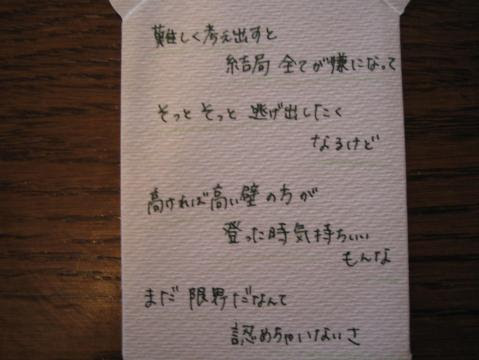 難しく考え出すと
結局 全てが嫌になって
そっと そっと 逃げ出したく
なるけど
高ければ高い壁の方が
登った時気持ちいい
もんな
まだ 限界だなんて
認めちゃいないさ